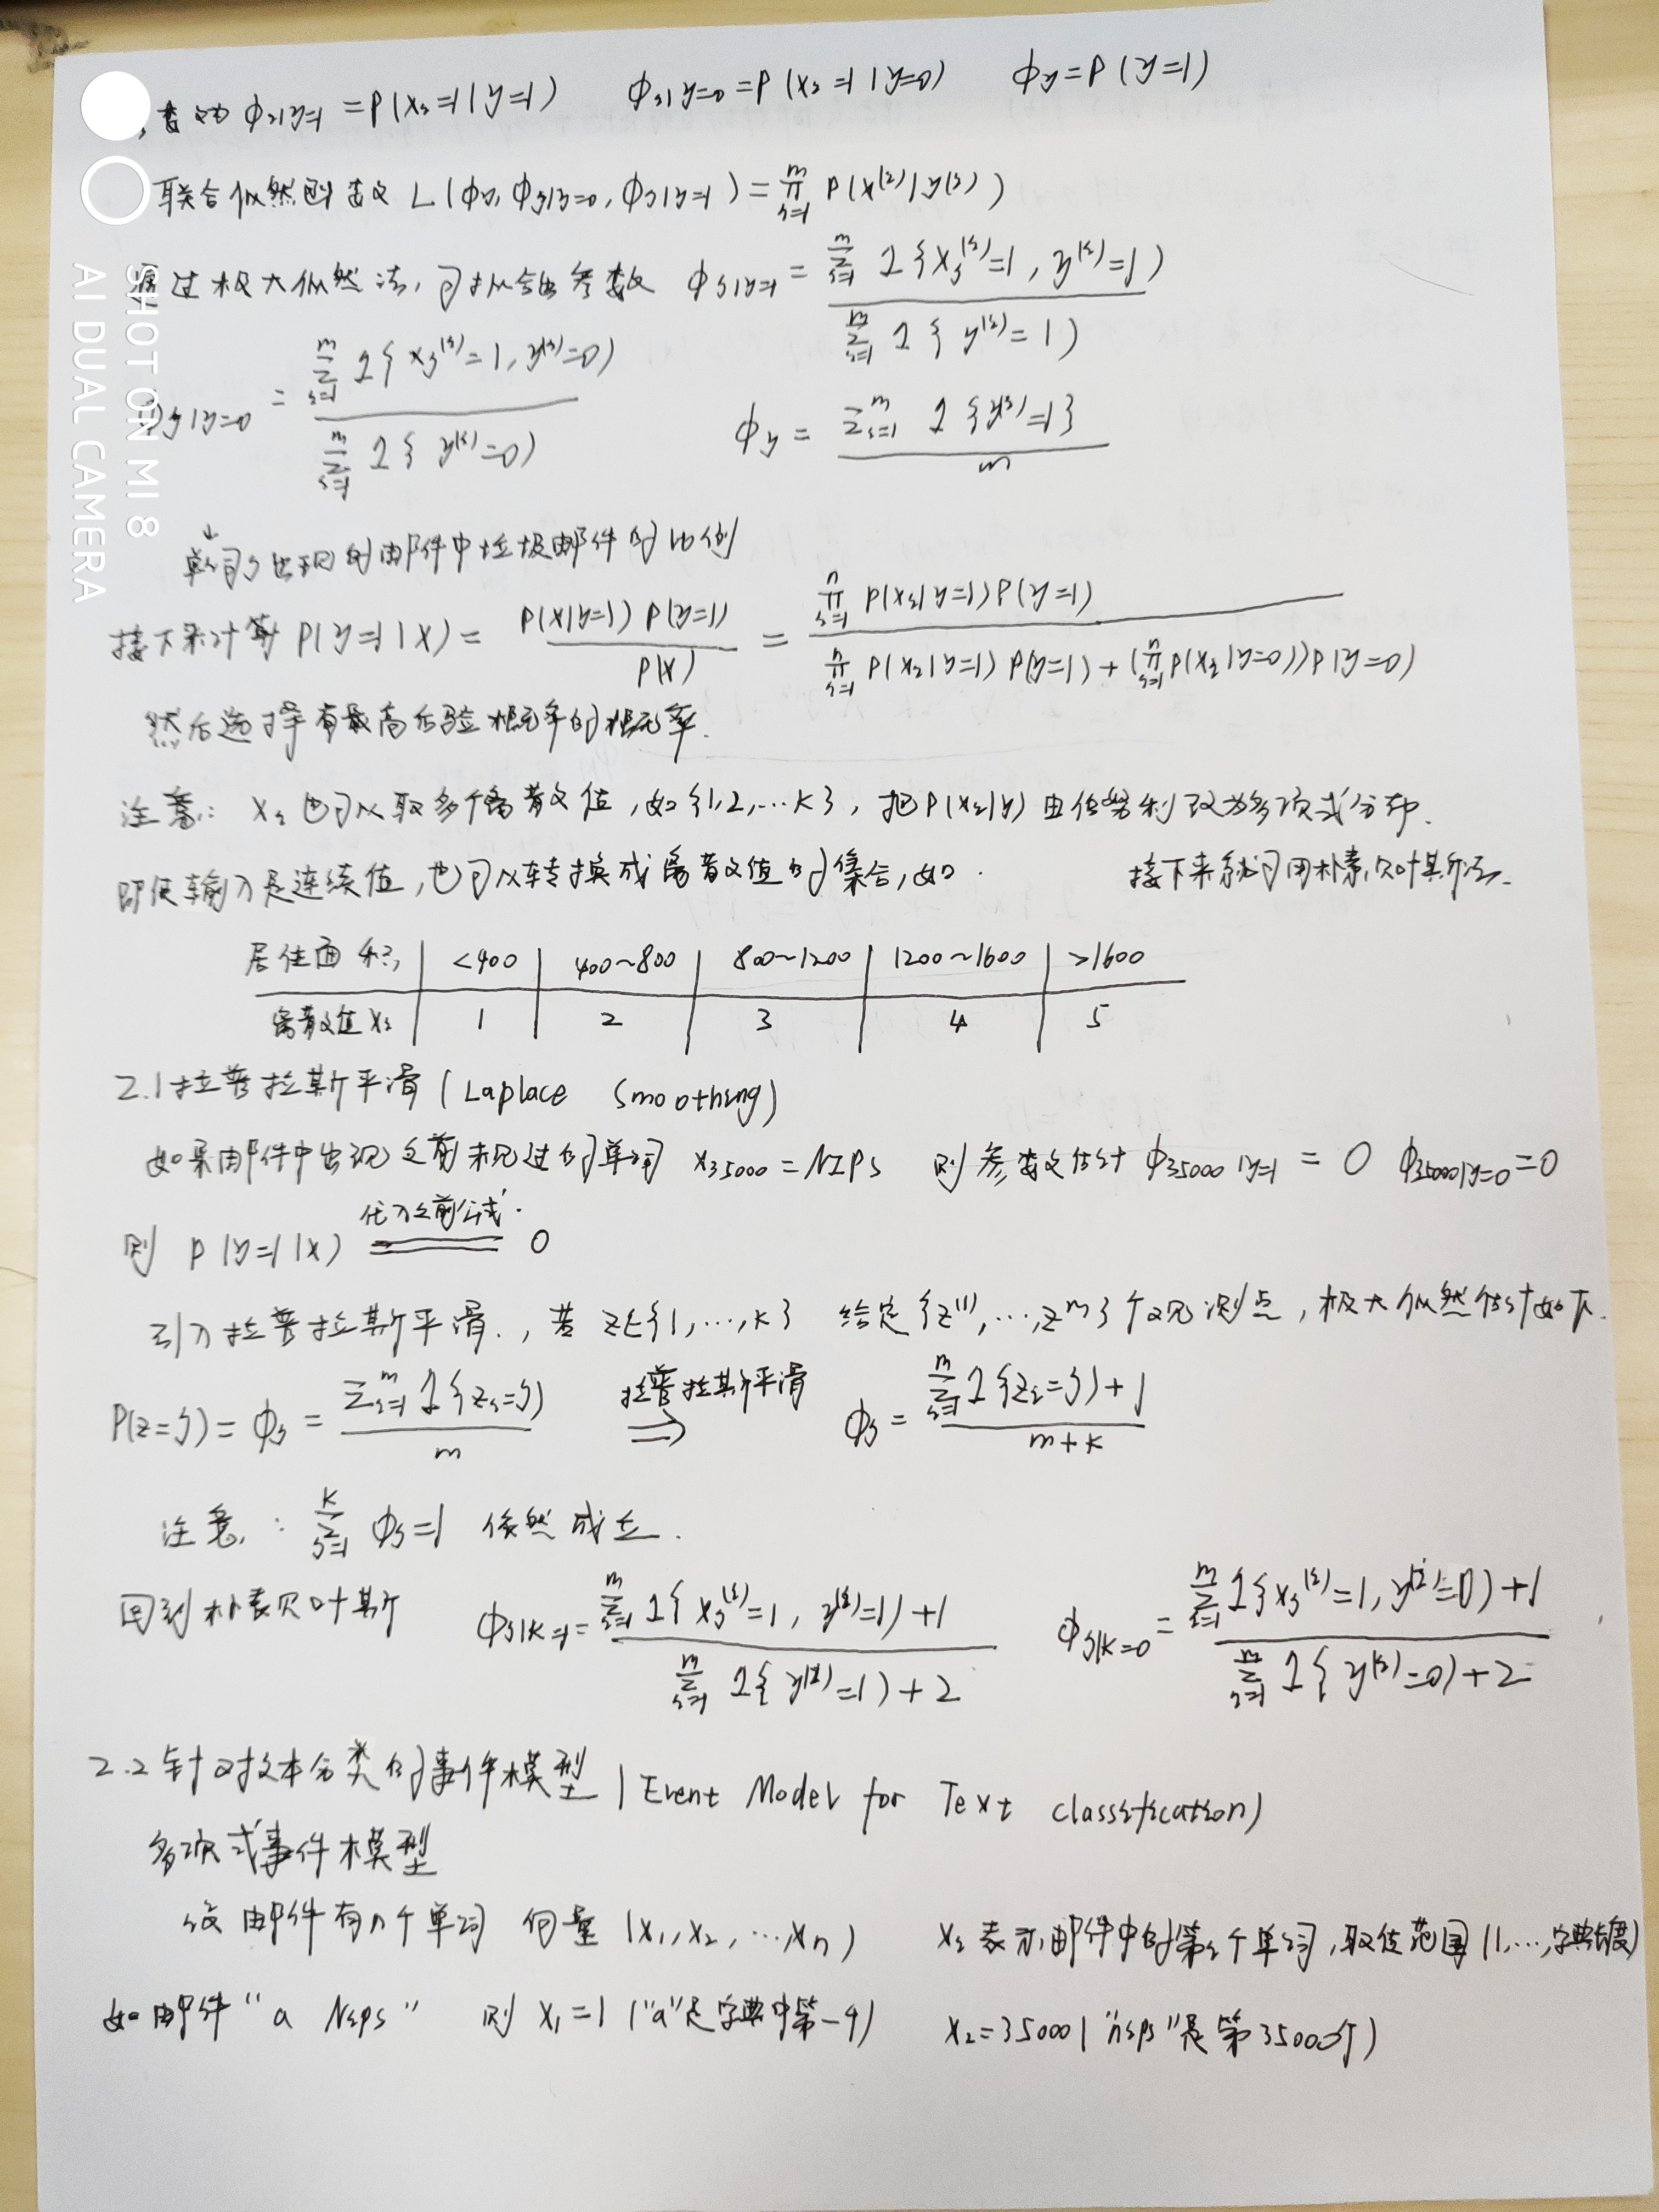 参数 φi|y=1 = P(xi=1|y=1) φi|y=0 = P(xi=1|y=0) φy = P(y=1)
联合似然函数 L(φy, φj|y=0, φj|y=1) = ∏_{i=1}^{m} P(x^(i)|y^(i))
通过极大似然法,可以给出参数 φj|y=1 = ∑_{i=1}^{m} 1{xj^(i)=1, y^(i)=1} / ∑_{i=1}^{m} 1{y^(i)=1}
φj|y=0 = ∑_{i=1}^{m} 1{xj^(i)=1, y^(i)=0} / ∑_{i=1}^{m} 1{y^(i)=0} φy = ∑_{i=1}^{m} 1{y^(i)=1} / m
↓
单词j出现的邮件中垃圾邮件的比例
接下来计算 P(y=1|x) = P(x|y=1)P(y=1) / P(x) = ∏_{i=1}^{n} P(xi|y=1)P(y=1) / ∏_{i=1}^{n} P(xi|y=1)P(y=1) + (∏_{i=1}^{n} P(xi|y=0))P(y=0)
然后选择有最高后验概率的概率.
注意: xi 也可以取多个离散值,如{1,2,…k},把P(xi|y)由伯努利改为多项式分布.
即使输入是连续值,也可以转换成离散值的集合,如. 接下来就可用朴素贝叶斯法.
居住面积 <400 400~800 800~1200 1200~1600 >1600
离散值 xi 1 2 3 4 5
2.1 拉普拉斯平滑 (Laplace Smoothing)
如果邮件中出现之前未见过的单词 x35000=NIPS 则参数估计 φ35000|y=1 = 0 φ35000|y=0 = 0
代入之前公式.
则 P(y=1|x) = 0
引入拉普拉斯平滑.,若 z∈{1,…,k} 给定{z^(1),…,z^m}个观测点,极大似然估计如下.
P(z=j) = φj = ∑_{i=1}^{m} 1{zi=j} / m 拉普拉斯平滑 ⇒ φj = ∑_{i=1}^{m} 1{zi=j}+1 / m+k
注意: ∑_{j=1}^{k} φj=1 依然成立.
回到朴素贝叶斯 φj|k=1 = ∑_{i=1}^{m} 1{xj^(i)=1, y^(i)=1}+1 / ∑_{i=1}^{m} 1{y^(i)=1}+2 φj|k=0 = ∑_{i=1}^{m} 1{xj^(i)=1, y^(i)=0}+1 / ∑_{i=1}^{m} 1{y^(i)=0}+2
2.2 针对文本分类的事件模型 (Event Model for Text classification)
多项式事件模型
设邮件有n个单词 向量 (x1,x2,…,xn) xi 表示邮件中的第i个单词,取值范围 (1,…,字典长度)
如邮件“a Nips” 则 x1=1 (“a”是字典中第一个) x2=35000 (“nips”是第35000个)
SHOT ON MI 8
AI DUAL CAMERA